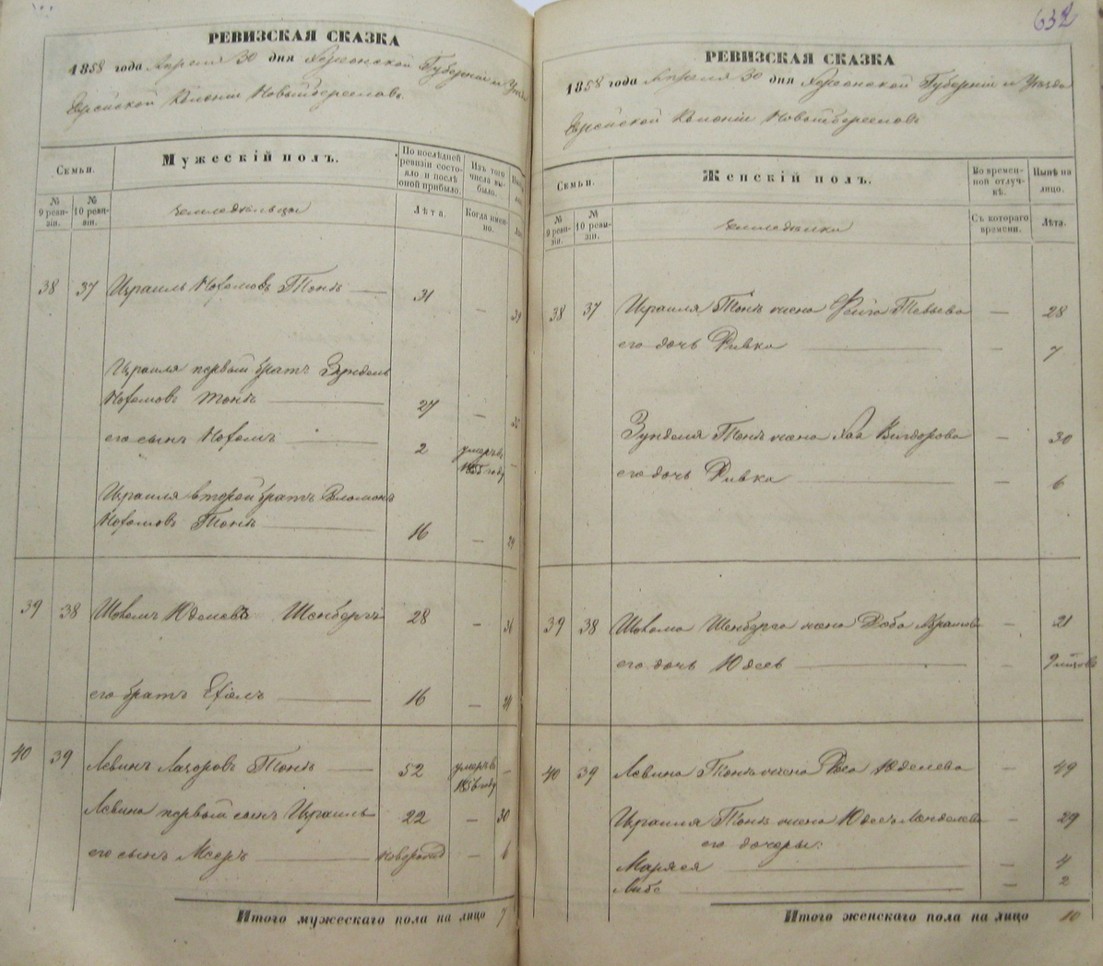 РЕВИЗСКАЯ СКАЗКА
1858 года Апреля 30 дня Херсонской Губернии и Уезда
Еврейской Колонии Новыйбереслав.
Семьи.
Мужескій полъ.
По послѣдней ревизіи состояло и послѣ оной прибыло.
Изъ того числа выбыло.
№ 9 ревизіи.
№ 10 ревизіи.
Земледельцы
Лѣта.
Когда именно.
38 37 Израиль Нохомовъ Тонъ 31 —
Израиля первый братъ Зундель
Нохомовъ Тонъ 27 —
его сынъ Нохемъ 2 умеръ въ 1855 году
Израиля второй братъ Соломонъ
Нохомовъ Тонъ 16 —
39 38 Шоломъ Юделевъ Шенбергъ 28 —
его братъ Ехіель 16 —
40 39 Левинъ Лазоровъ Тонъ 52 умеръ въ 1856 году —
Левина первый сынъ Израиль 22 — 30
его сынъ Мееръ новорожд — 6
Итого мужескаго пола на лицо 7
632
РЕВИЗСКАЯ СКАЗКА
1858 года Апреля 30 дня Херсонской Губерніи и Уезда
Еврейской Колоніи Новыйбереславъ
Семьи.
Женскій полъ.
Во временной отлучкѣ.
Нынѣ на лицо.
№ 9 ревизіи.
№ 10 ревизіи.
Земледелки
Съ котораго времени.
Лѣта.
38 37 Израиля Тонъ жена Фейга Тевьева — 28
его дочь Ривка — 7
Зунделя Тонъ жена Хая Вигдорова — 30
его дочь Ривка — 6
39 38 Шолома Шенберга жена Доба Абрамова — 21
его дочь Юдесъ —
40 39 Левина Тонъ жена Роса Юделева — 49
Израиля Тонъ жена Юдесъ Менделева — 29
его дочеры:
Маряся — 4
Либе — 2
Итого женскаго пола на лицо 10